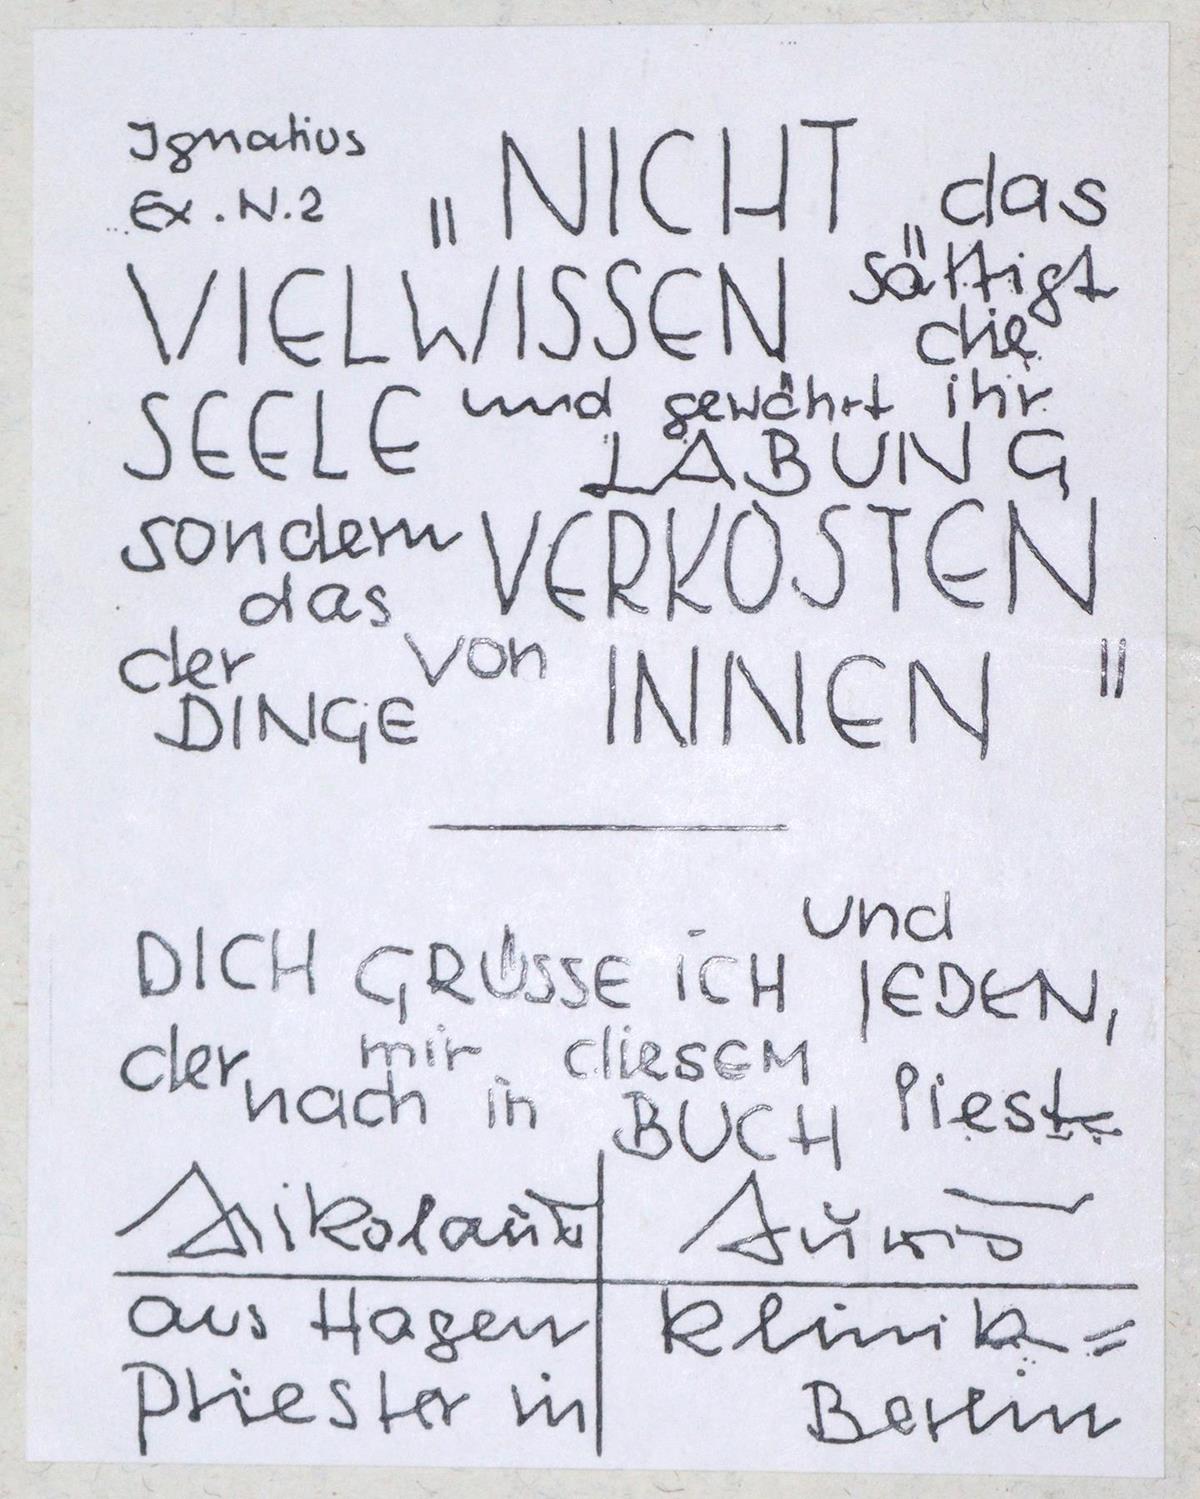 Ignatius
Ex. N. 2 „NICHT „das
VIELWISSEN sättigt
die
SEELE und gewährt ihr
LABUNG
sondern VERKOSTEN
das
der von INNEN "
DINGE
und
DICH GRÜSSE iCH JEDEN,
der mir diesEM liest
nach in BUCH
Nikolaus
aus Hagen Klinik=
Priester in Berlin